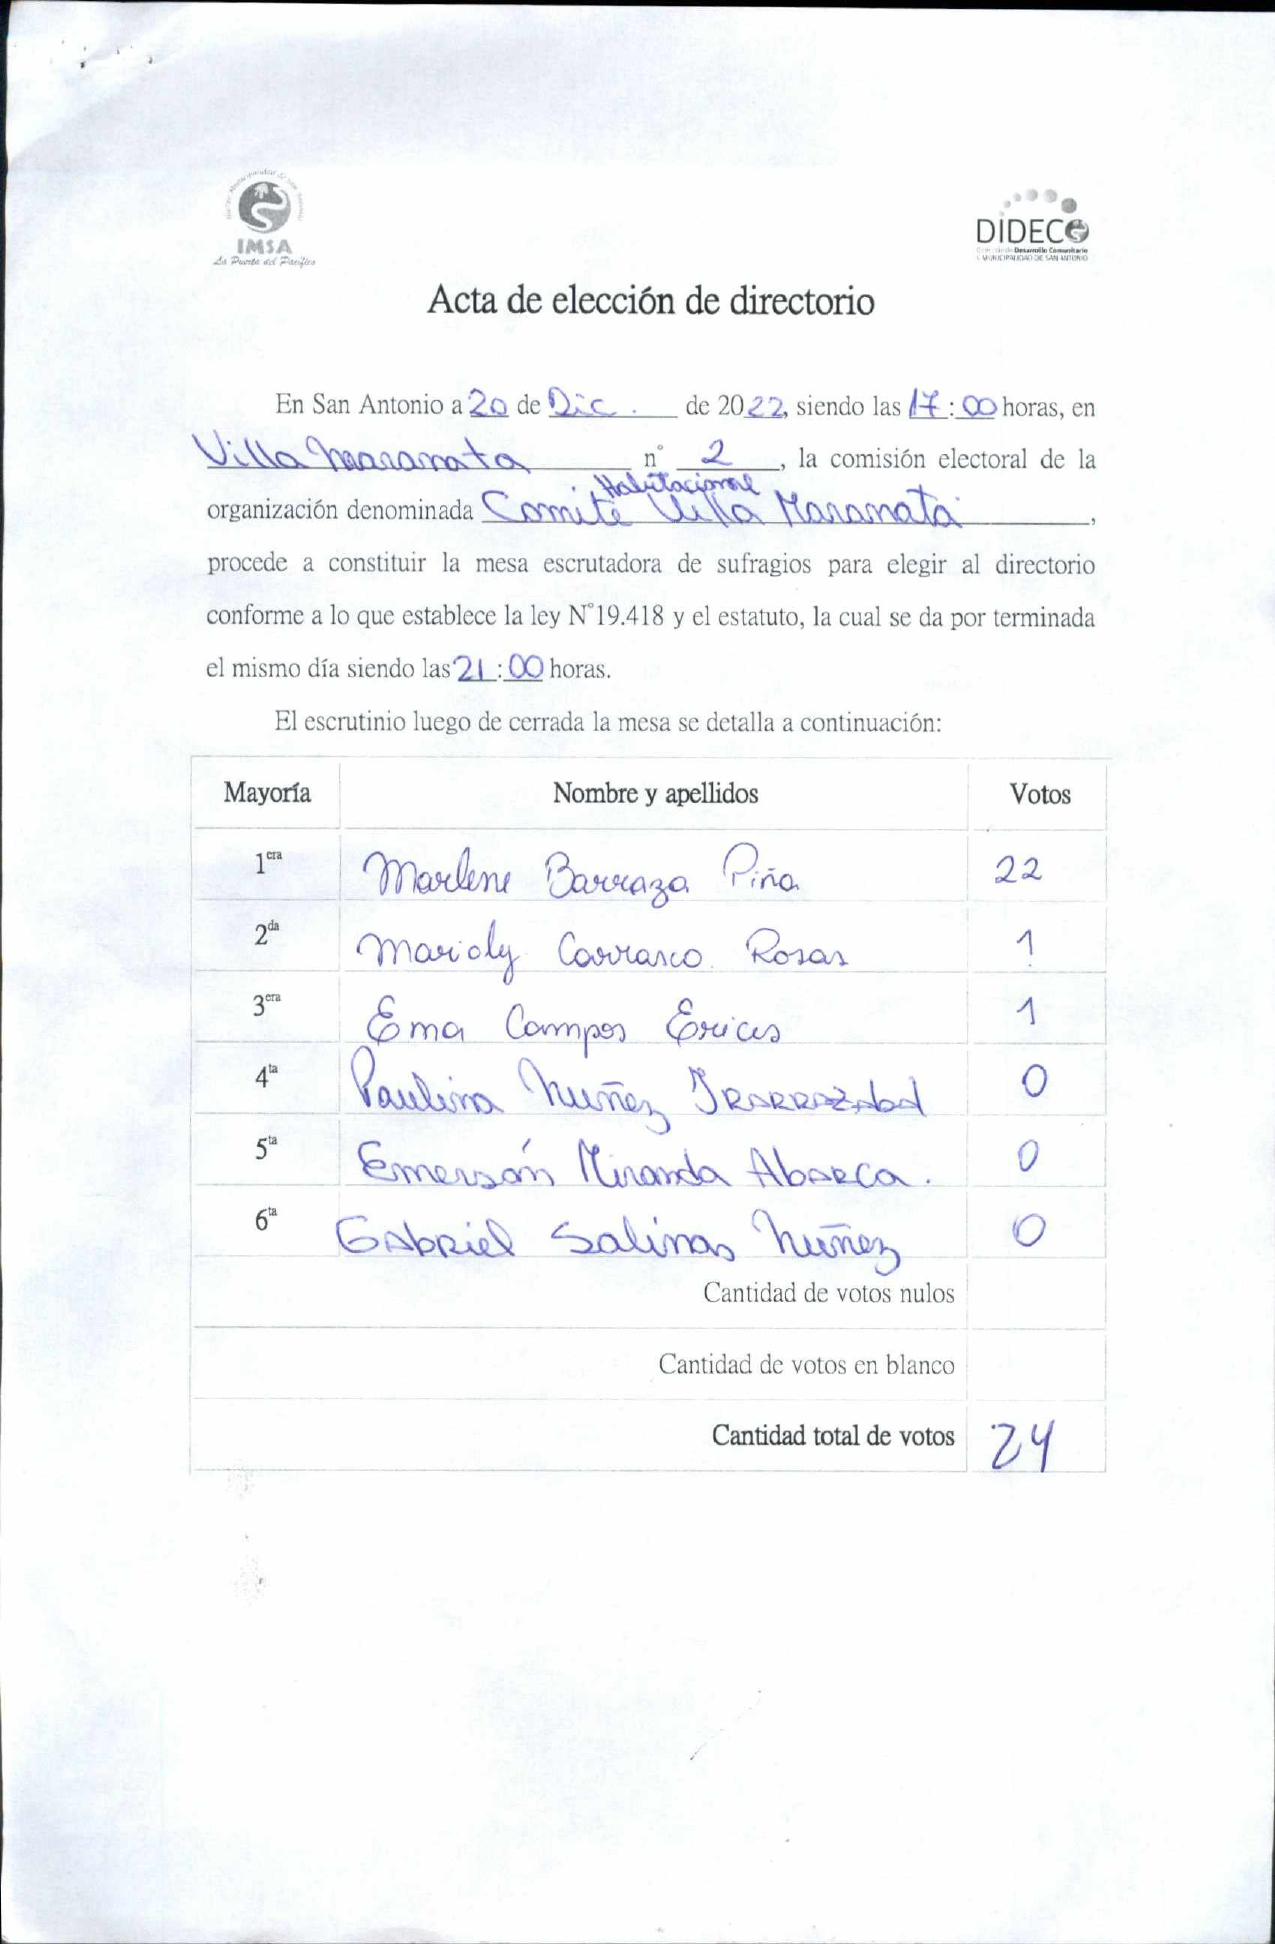 IMSA
La Puerta del Pacífico
DIDECO
Desarrollo Comunitario
I. MUNICIPALIDAD DE SAN ANTONIO
Acta de elección de directorio
En San Antonio a 20 de Dic. de 2022, siendo las 17:00 horas, en
Villa Maranata n° 2, la comisión electoral de la
Habitacional
organización denominada Comité Villa Maranata,
procede a constituir la mesa escrutadora de sufragios para elegir al directorio
conforme a lo que establece la ley N°19.418 y el estatuto, la cual se da por terminada
el mismo día siendo las 21:00 horas.
El escrutinio luego de cerrada la mesa se detalla a continuación:
Mayoría Nombre y apellidos Votos
1era Marlene Barraza Piña 22
2da Marioly Carrasco Rosas 1
3era Ema Campos Erices 1
4ta Paulina Nuñez Irarrazabal 0
5ta Emersón Miranda Abarca. 0
6ta Gabriel Salinas Nuñez 0
Cantidad de votos nulos
Cantidad de votos en blanco
Cantidad total de votos 24